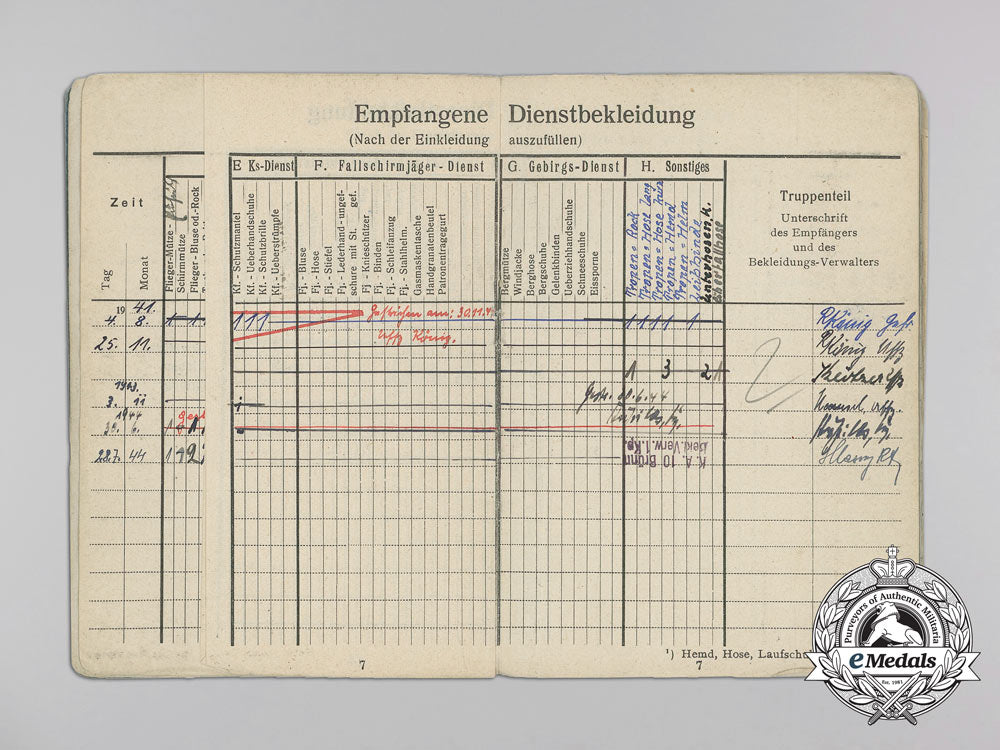 Empfangene Dienstbekleidung
(Nach der Einkleidung auszufüllen)
Zeit
Tag
Monat
Flieger-Mütze -
Schirmmütze
Flieger - Bluse od.-Rock
E Ks-Dienst
Kf. - Schutzmantel
Kf. - Überhandschuhe
Kf. - Schutzbrille
Kf. - Ueberstrümpfe
F. Fallschirmjäger - Dienst
Fj. - Bluse
Fj. - Hose
Fj. - Stiefel
Fj. - Lederhand - ungef-
schure mit St. gef.
Fj. - Knieschützer
Fj. - Binden
Fj. - Schleifanzug
Fj. - Stahlhelm.
Gasmaskentasche
Handgranatenbeutel
Patronentragegurt
G. Gebirgs - Dienst
Bergmütze
Windjacke
Berghose
Bergschuhe
Gelenkbinden
Ueberziehhandschuhe
Schneeschuhe
Eissporne
H. Sonstiges
Tropen = Rock
Tropen = Hose lang
Tropen = Hose kurz
Tropen = Hemd
Tropen = Helm
Leibbinde
Unterhosen, k.
Überfallhose
Truppenteil
Unterschrift
des Empfängers
und des
Bekleidungs-Verwalters
19 41.
4. 8. 1 1 1 1 1 1 1 1 1 1 R König Gefr.
Gestrichen am: 30.11.4
Uffz König.
25. 11. R König Uffz
1 3 2 1
1943.
3. 11
Gestr. 30.6.44
1944
30. 6.
K. A. 10 Brünn
Bekl. Verw. 1. Kp.
28.7. 44 1 2
7
¹) Hemd, Hose, Laufsch
7
Purveyors of Authentic Militaria
eMedals
Est. 1981